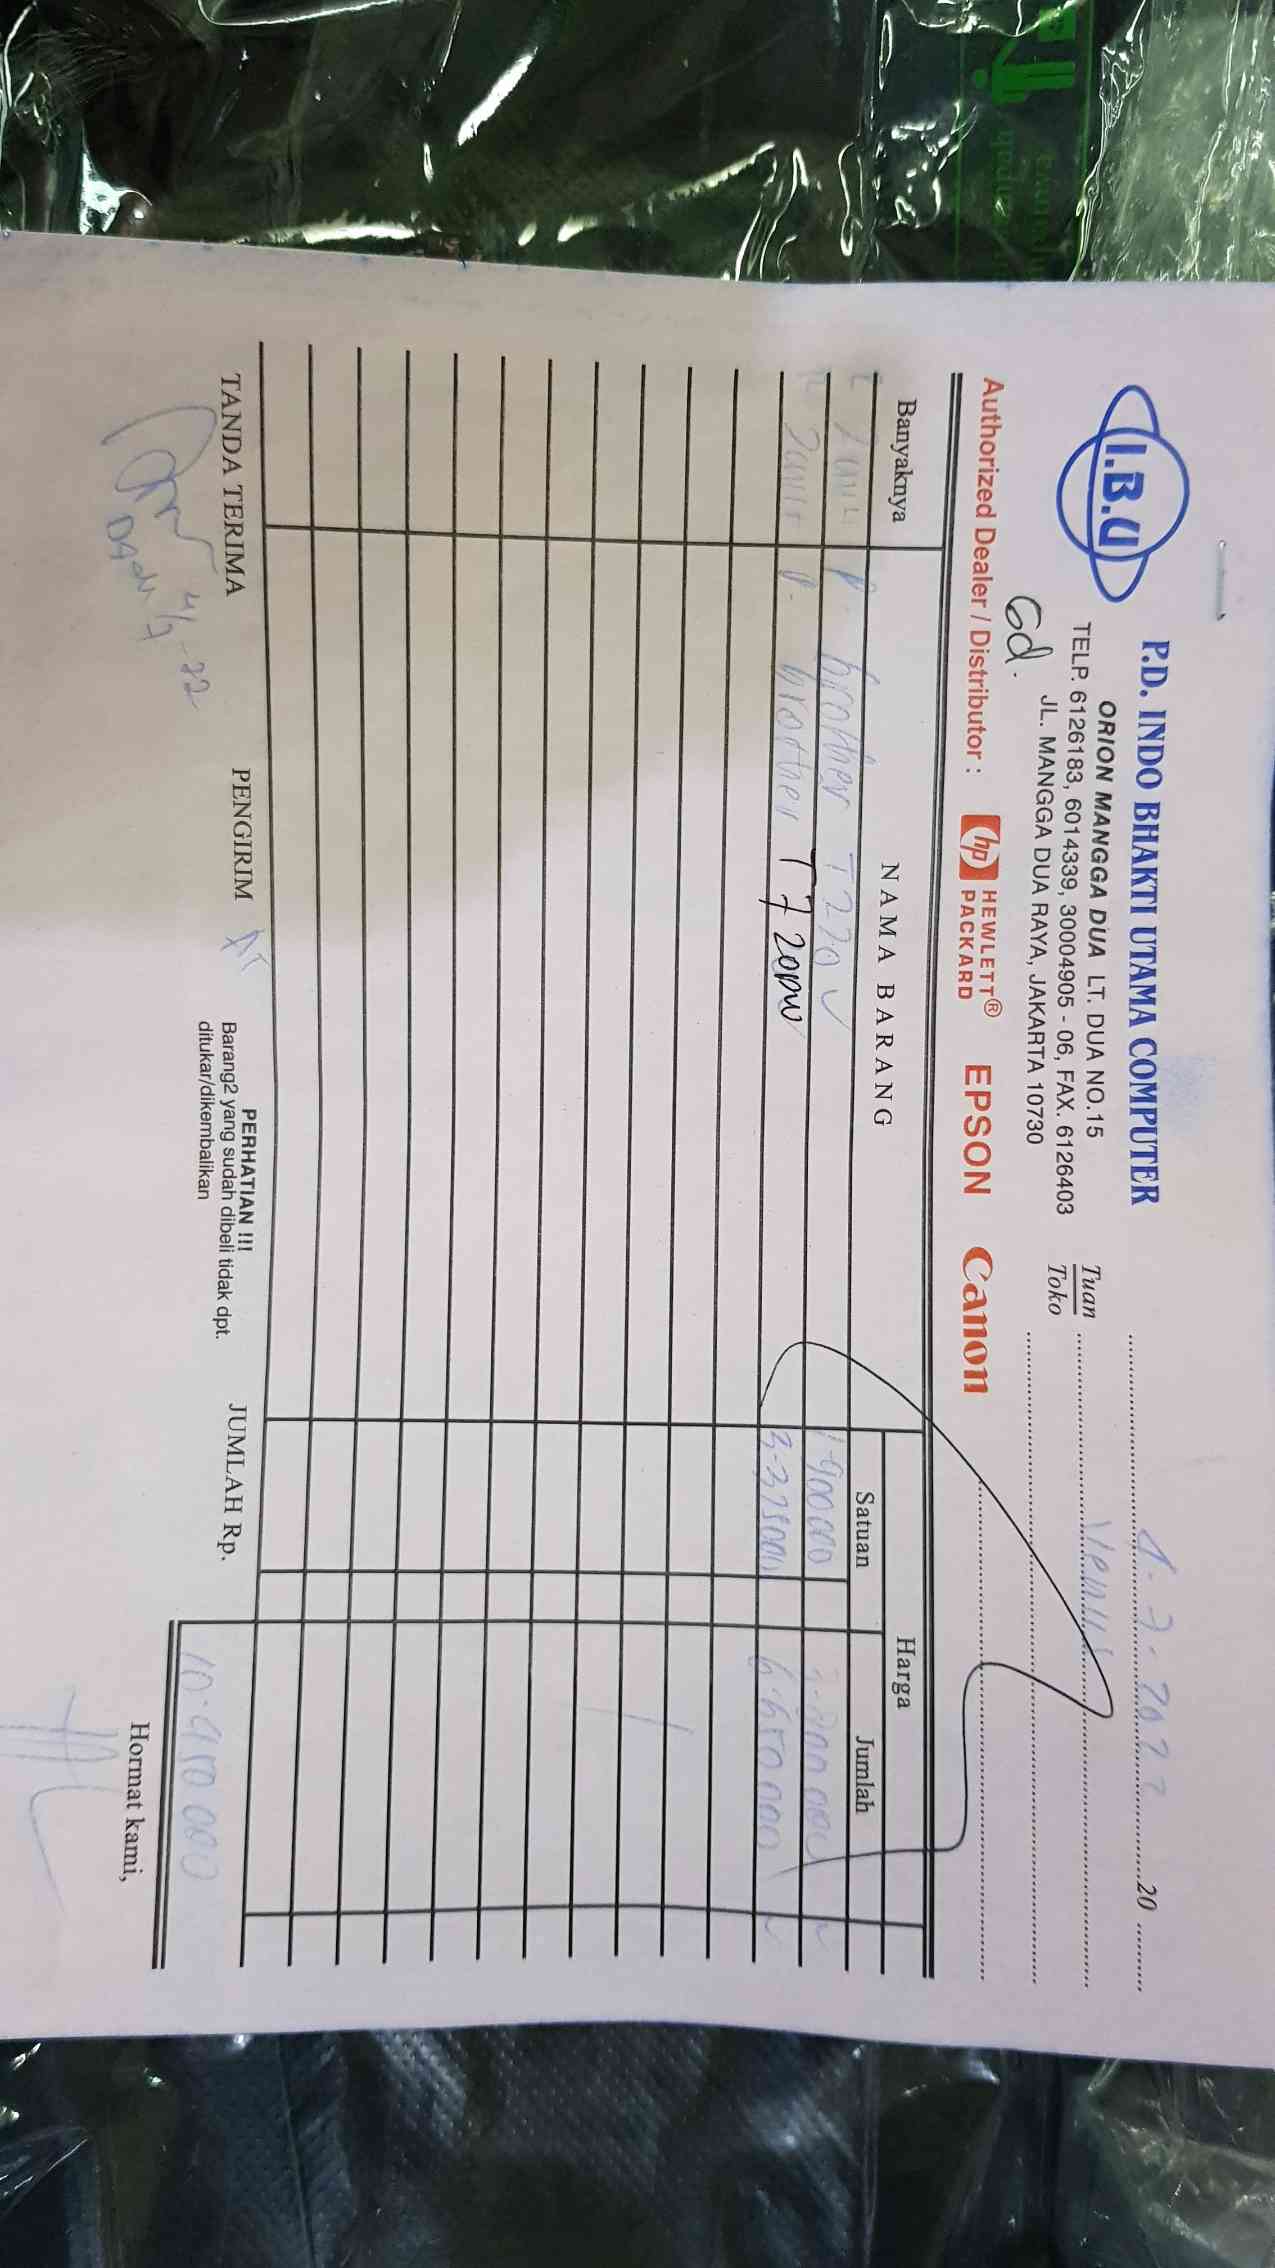 I.B.U
P.D. INDO BHAKTI UTAMA COMPUTER
ORION MANGGA DUA LT. DUA NO.15
TELP. 6126183, 6014339, 30004905 - 06, FAX. 6126403
JL. MANGGA DUA RAYA, JAKARTA 10730
Gd.
4.7.2022 20
Tuan
Toko
Authorized Dealer / Distributor : hp HEWLETT® PACKARD EPSON Canon
Banyaknya NAMA BARANG Harga
Satuan Jumlah
2 unit P. brother T220 1.900000 3.800.000
2 unit P. brother T720DW 3.325000 6.650.000
TANDA TERIMA PENGIRIM
PERHATIAN !!!
Barang2 yang sudah dibeli tidak dpt.
ditukar/dikembalikan
JUMLAH Rp. 10.450.000
4/7-22
Hormat kami,